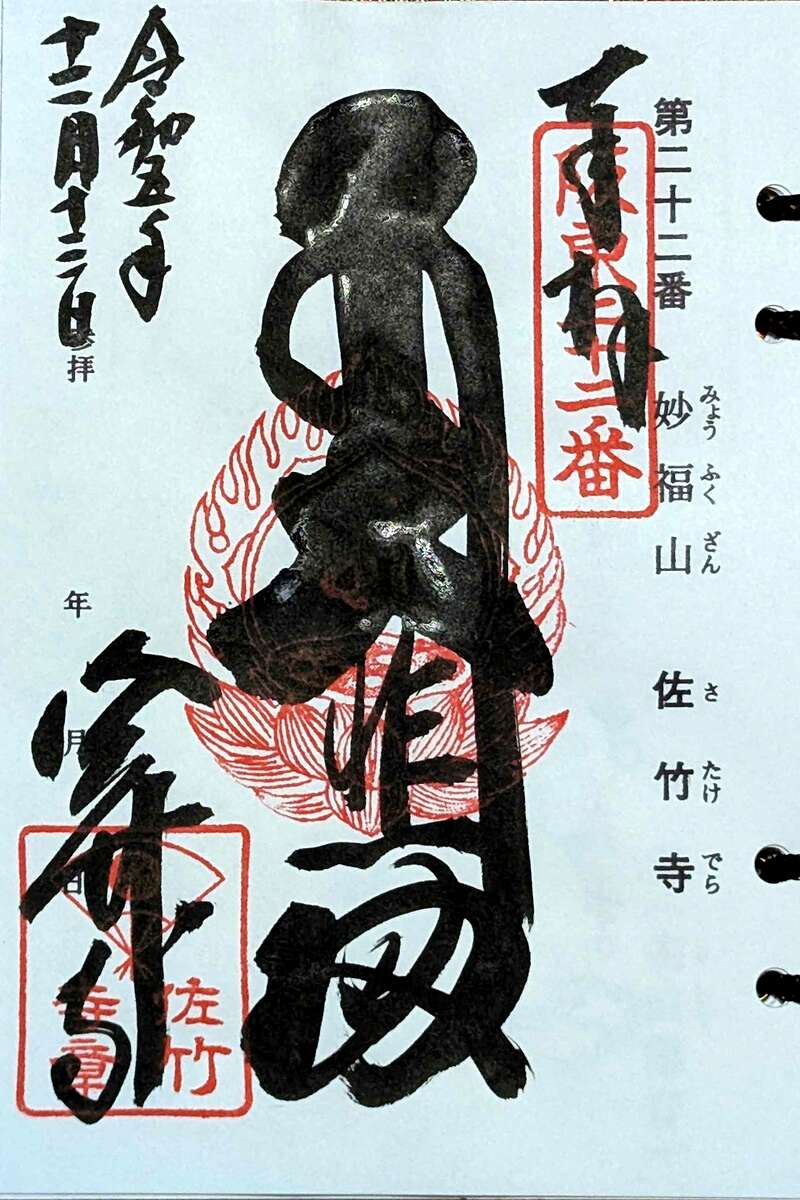 第二十二番 妙福山 佐竹寺
みょう ふく ざん さ たけ でら
奉拝
阪東二十二番
令和五年
十二月十二日
参拝
年 月 日
佐竹
寺章